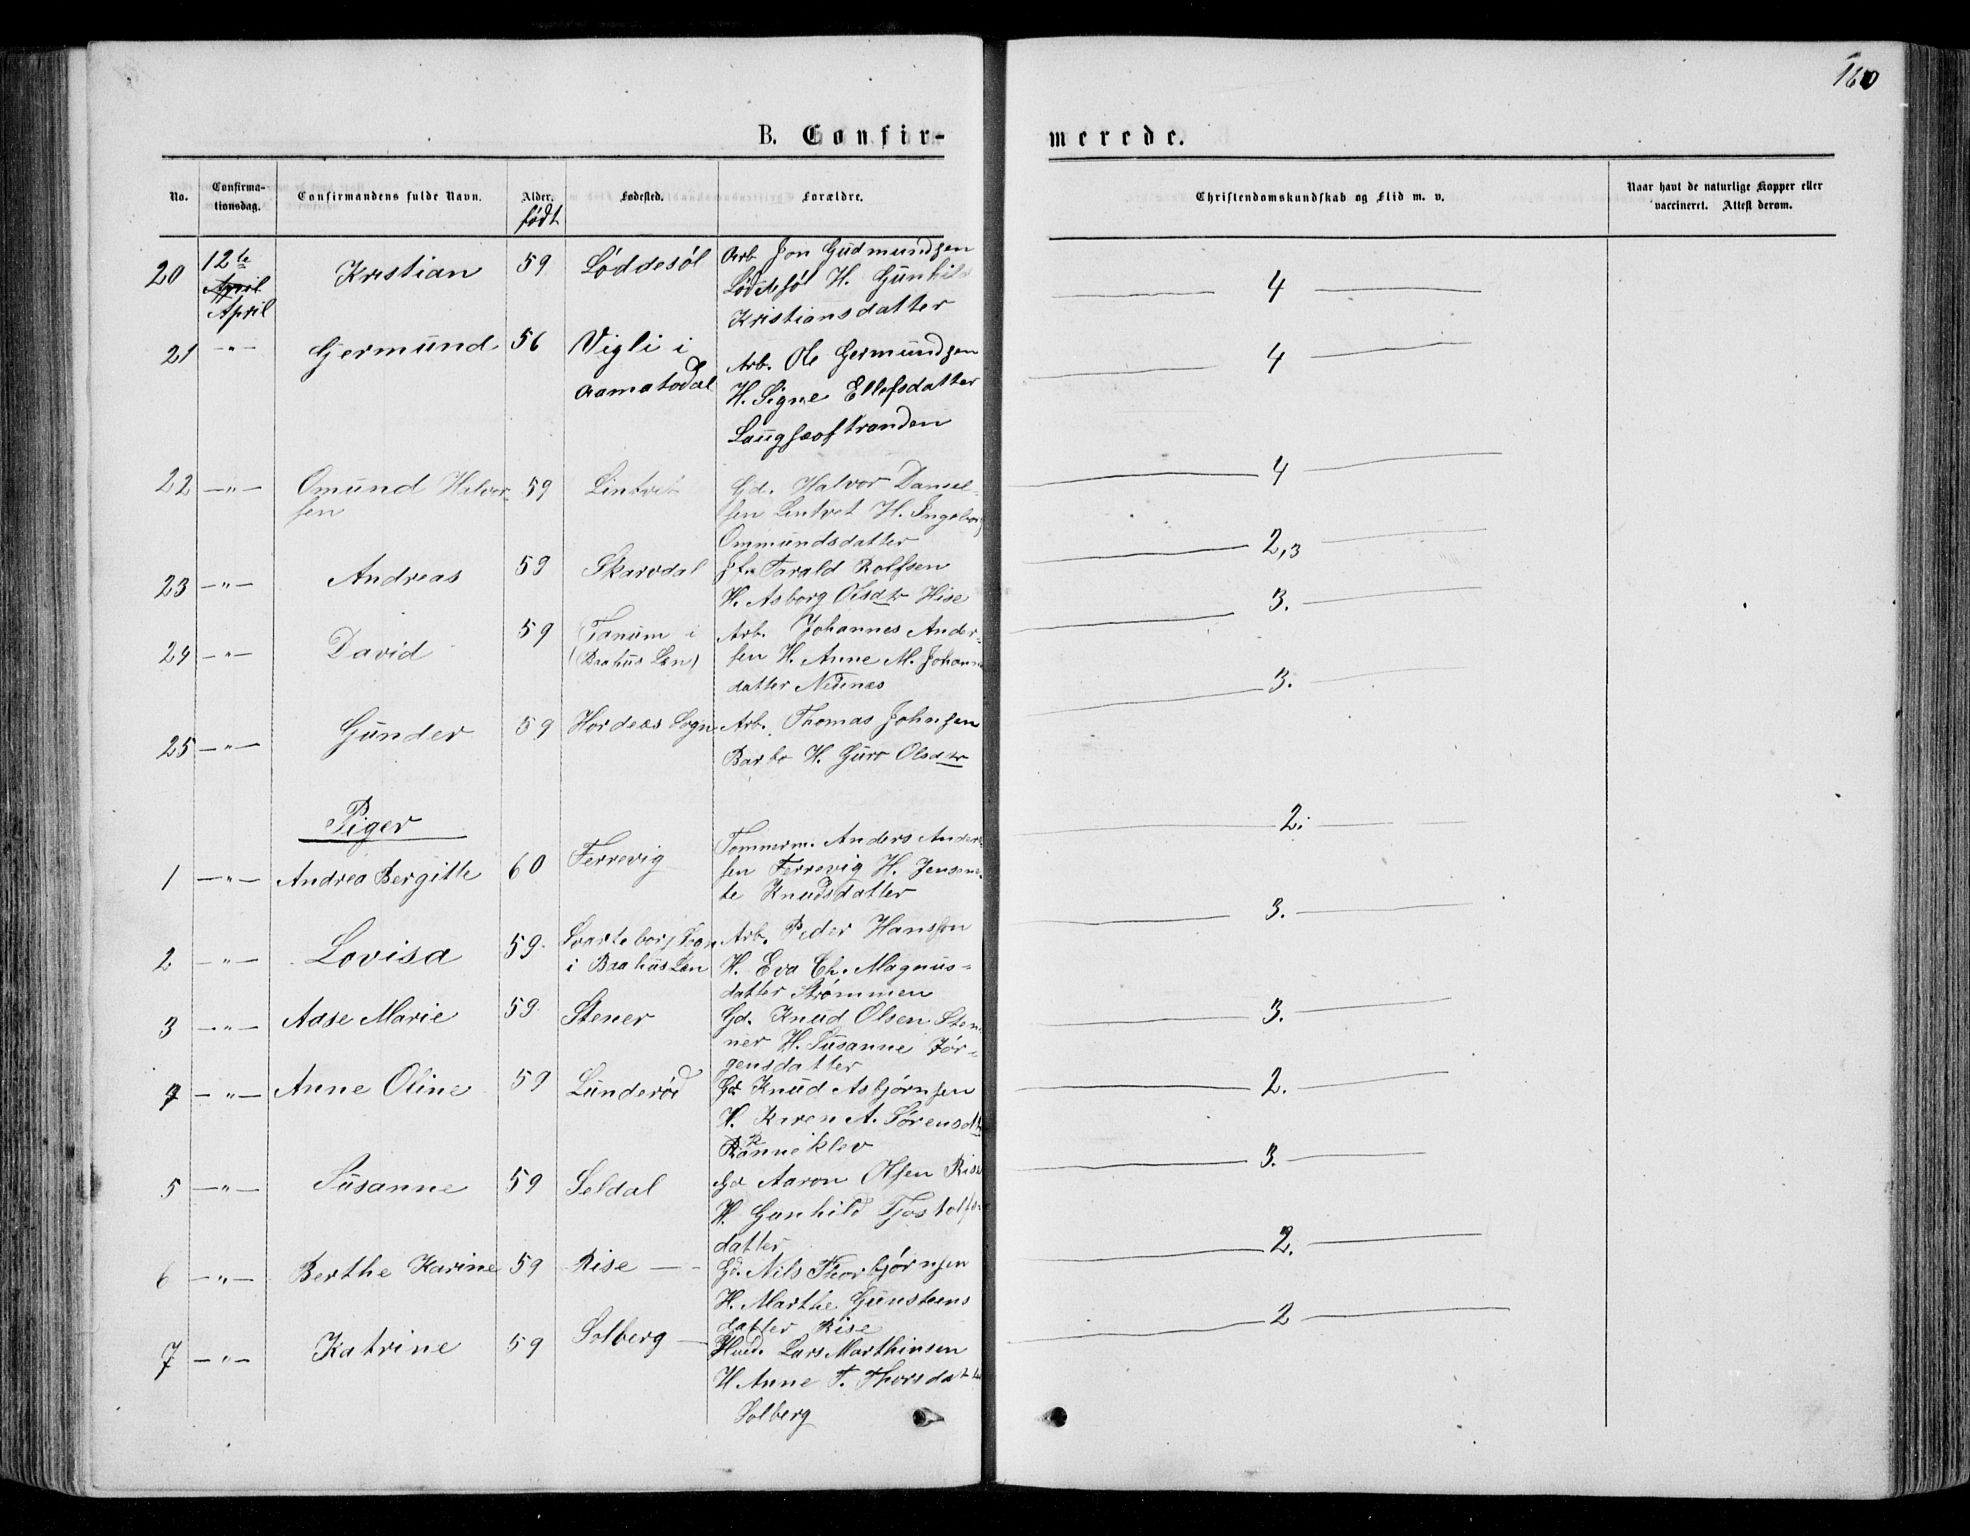 160
B. Confir- merede.
No. Confirma-tionsdag. Confirmandens fulde Navn. Alder. Fødested. Forældre. Christendomskundskab og Flid m. v. Naar havt de naturlige Kopper eller vaccineret. Attest derom.
født
20 12te Kristian 59 Løddesøl Arb. Jon Gudmundsen 4
April Løddesøl H. Gunhild
April Kristiansdatter
21 -"- Gjermund 56 Vigli i Arb. Ole Germundsen 4
Aamatsdal H. Signe Ellefsdatter
Laugsæstranden
22 -"- Omund Halvor- 59 Lintvet Gd. Halvor Daniel- 4
sen sen Lintvet H. Ingeborg
Ommundsdatter
23 -"- Andreas 59 Skarvdal Tarald Rolfsen 2,3
H. Asborg Olsdtr Hise
24 -"- David 59 (Tanum i Arb. Johannes Ander- 3.
(Baahus Len) sen H. Anne M. Johann
datter Nedenæs
25 -"- Gunder 59 Hordnæs Sogn Arb. Thomas Johnsen 3.
Barbo H. Guro Olsdtr
Piger
1 -"- Andrea Bergitte 60 Ferrevig Tømmerm. Anders Ander- 2.
sen Ferrevig H. Jensine-
te Knudsdatter
2 -"- Lovisa 59. Svarteborg Sogn Arb. Peder Hanssen 3.
i Baahus Len H. Eva Ch. Magnus-
datter Strømmen
3 -"- Aase Marie 59. Stener Gd. Knud Olsen Ste- 3.
ner H. Susanne Jør-
gensdatter
4 -"- Anne Oline 59 Lunderød Gd. Knud Asbjørnsen 2.
H. Karen A. Sørensdtr
Ranneklev
5 -"- Susanne 59 Seldal Gd. Aaron Olsen Rise 3.
H. Gunhild Tjostolfs
datter
6 -"- Berthe Karine 59 Rise Gd. Nils Thorbjørnsen 2.
H. Marthe Gunsteens
datter Rise
7 -"- Katrine 59 Solberg Huusd. Lars Marthinsen 2
H Anne T. Thorsdatter
Solberg